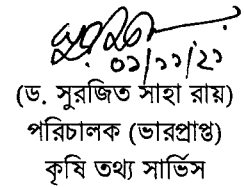 ০১/১১/২১
(ড. সুরজিত সাহা রায়)
পরিচালক (ভারপ্রাপ্ত)
কৃষি তথ্য সার্ভিস